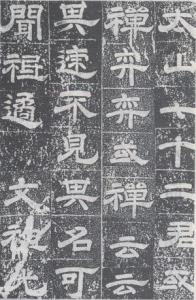 太山七十二君或
禪弈弈或禪云云
其迹不見其名可
聞祗遹文祖光